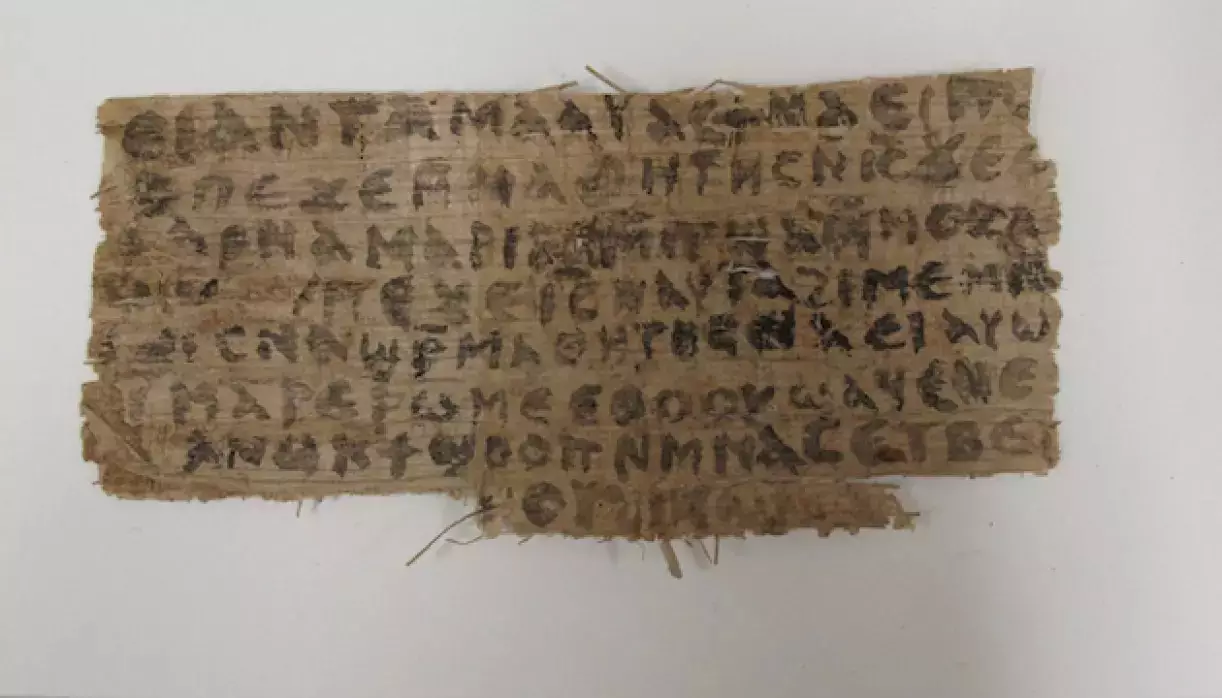 ⲉⲓ ⲁⲛ ⲧⲁⲙⲁⲁⲩ ⲁⲥϯ ⲛⲁⲉⲓ ⲡ
ⲥ ⲡⲉϫⲉ ⲙ̄ⲙⲁⲑⲏⲧⲏⲥ ⲛ̄ⲓ̄ⲥ̄ ϫⲉ ⲥ
ⲁⲣⲛⲁ ⲙⲁⲣⲓⲁⲙ ⲙ̄ⲡϣⲁ ⲙ̄ⲙⲟⲥ ⲁ
ⲡⲉϫⲉ ⲓ̄ⲥ̄ ⲛⲁⲩ ⲧⲁϩⲓⲙⲉ ⲙⲛ
ⲥⲛⲁϣⲣ̄ⲙⲁⲑⲏⲧⲏⲥ ⲛⲁⲉⲓ ⲁⲩⲱ
ⲓ ⲙⲁⲣⲉⲣⲱⲙⲉ ⲉⲑⲟⲟⲩ ϣⲁϥⲉ ⲛⲉ
ⲁⲛⲟⲕ ϯϣⲟⲟⲡ ⲛⲙⲙⲁⲥ ⲉⲧⲃⲉ
ⲟⲩϩⲓⲕⲱⲛ